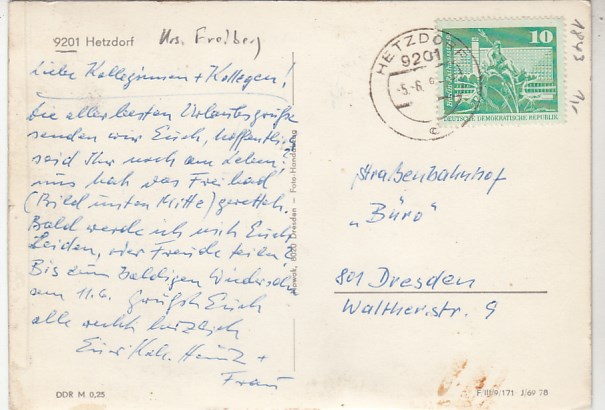 9201 Hetzdorf Krs. Freiberg
Liebe Kolleginnen + Kollegen!
Die allerbesten Urlaubsgrüße
senden wir Euch, hoffentlich
seid Ihr noch am Leben.
uns hat das Freibad
(Bild unten Mitte) gerettet.
Bald werde ich mit Euch
Leiden, oder Freude teilen.
Bis zum baldigen Wiedersehn
am 11.6. grüßt Euch
alle recht herzlich
Euer Koll. Heinz +
Frau
DDR M 0,25
8020 Dresden - Foto-Handabzug
HETZDORF
9201
-5.-6.
e
10
DEUTSCHE DEMOKRATISCHE REPUBLIK
1843
Straßenbahnhof
„Büro"
801 Dresden
Waltherstr. 9
F III/9/171 J/69 78